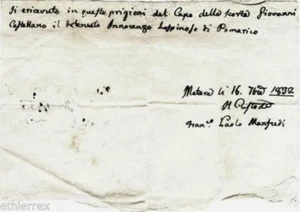 Si ricevuto in queste prigioni dal Capo della scorta Giovanni
Castellano il detenuto Innocenzo Lospinoso di Pomarico
Matera li 16. 7bre 1832
Il Custode
Franco Paolo Manfredi
ethierrex